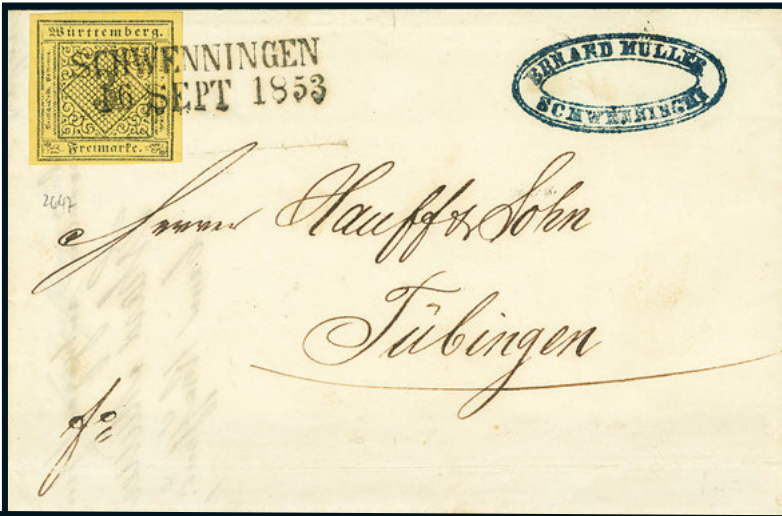 Württemberg.
SCHWENNINGEN
16 SEPT 1853
Freimarke.
ERHARD MÜLLER
SCHWENNINGEN
2647
Herren Hauff & Sohn
Tübingen
fo